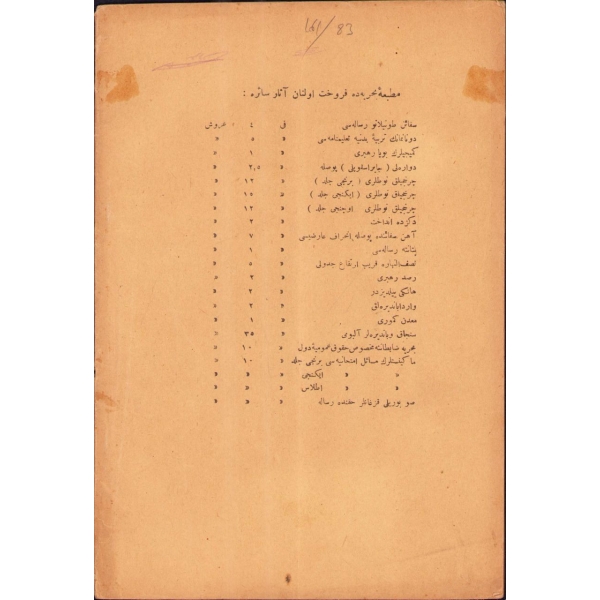 83
مطبعهٔ بحریه‌ده فروخت اولنان آثار سائره :
سفائن طونیلاتو رساله‌سی فی ٤ غروش
دونانمانك تربیهٔ بدنیه تعلیمنامه‌سی » ٥ »
كمیجیلرك بویا رهبری » ١ »
دوارملی ( جایراسقوپلی ) پوصله » ٢,٥ »
چرخجیلق نوطلری ( برنجی جلد ) » ١٢ »
چرخجیلق نوطلری ( ایكنجی جلد ) » ١٥ »
چرخجیلق نوطلری ( اوچنجی جلد ) » ١٢ »
دكزده انداخت » ٣ »
آهن سفائنده پوصله انحراف عارضیسی » ٧ »
پتانته رساله‌سی » ١ »
نصف‌النهاره قریب ارتفاع جدولی » ٥ »
رصد رهبری » ٣ »
هانكی ییلدیزدر » ٢ »
واردیاباندیره‌لق » ٢ »
معدن كموری » ١ »
سنجاق وباندیره‌لر آلبوی » ٣٥ »
بحریه ضابطاننه مخصوص حقوق عمومیهٔ دول » ١٠ »
ماكینستلرك مسائل امتحانیه‌سی برنجی جلد » ١٠ »
» » ایكنجی » » »
» » اطلاس » » »
صو بوریلی قزغانلر حقنده رساله » » »